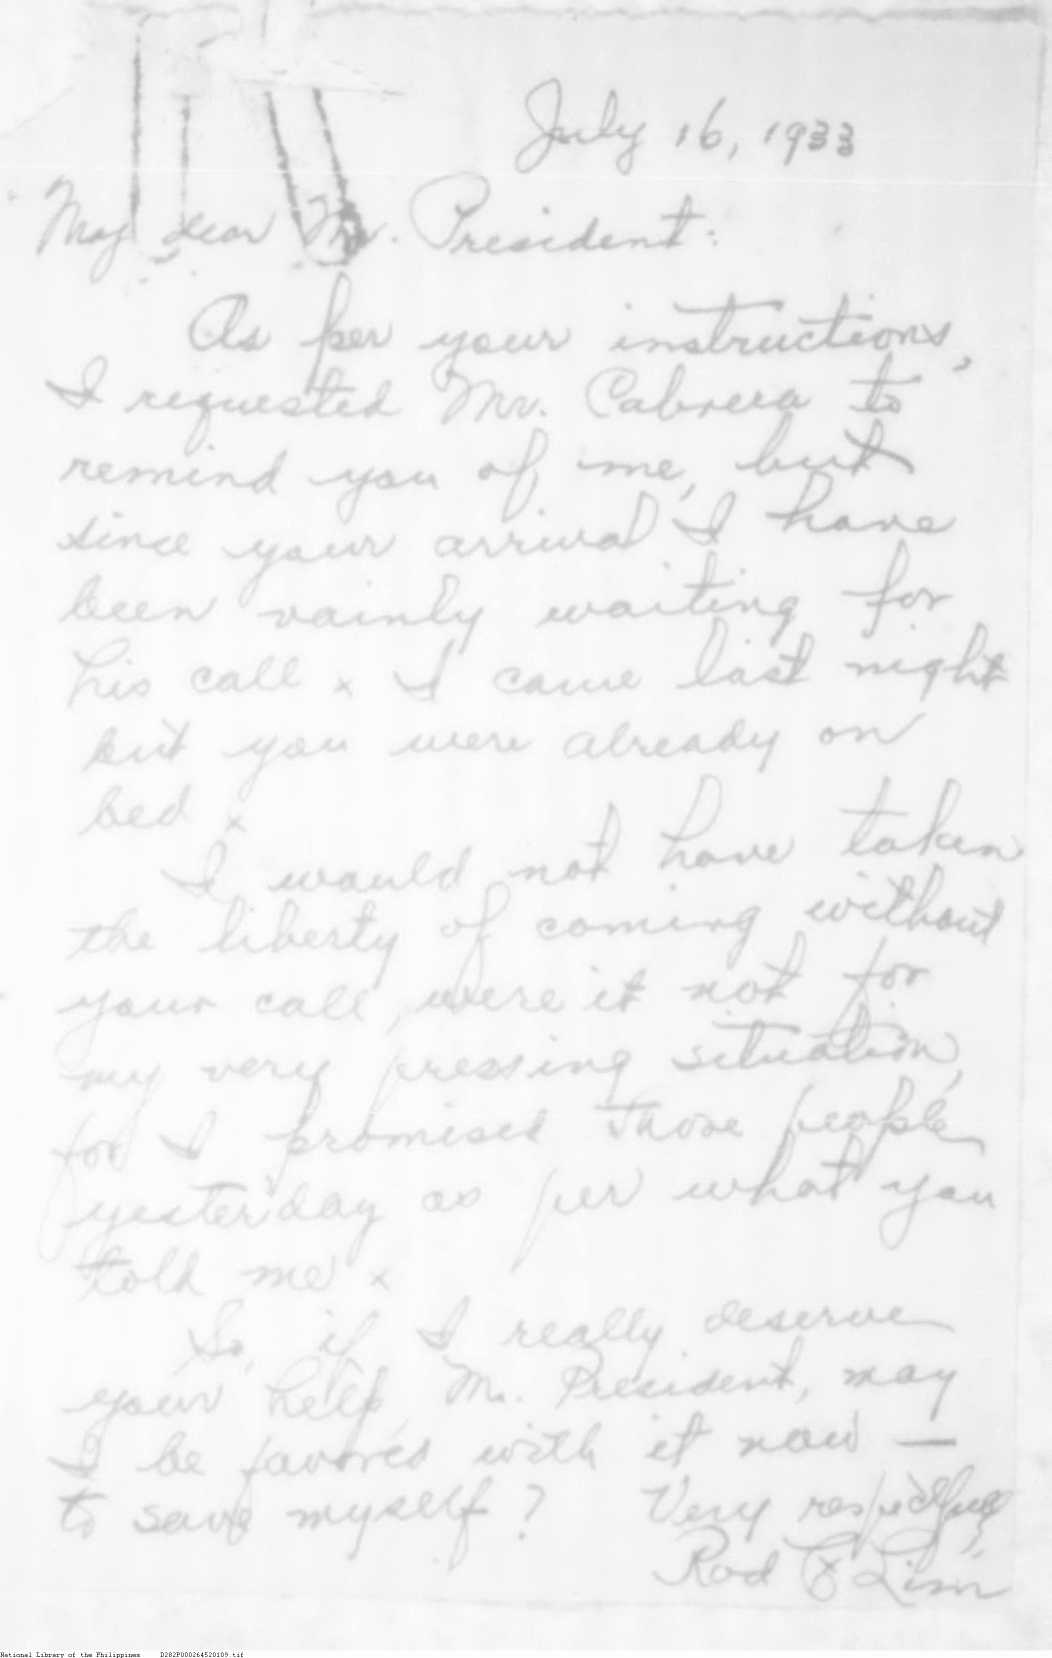 July 16, 1933
My dear Mr. President:
As per your instructions,
I requested Mr. Cabrera to
remind you of me, but
since your arrival I have
been vainly waiting for
his call x I came last night
but you were already on
bed x
I would not have taken
the liberty of coming without
your call, were it not for
my very pressing situation,
for I promised those people
yesterday as per what you
told me x
So, if I really deserve
your help, Mr. President, may
I be favored with it now —
to save myself? Very respectfully,
Rod Lim
National Library of the Philippines D282P000264520109.tif